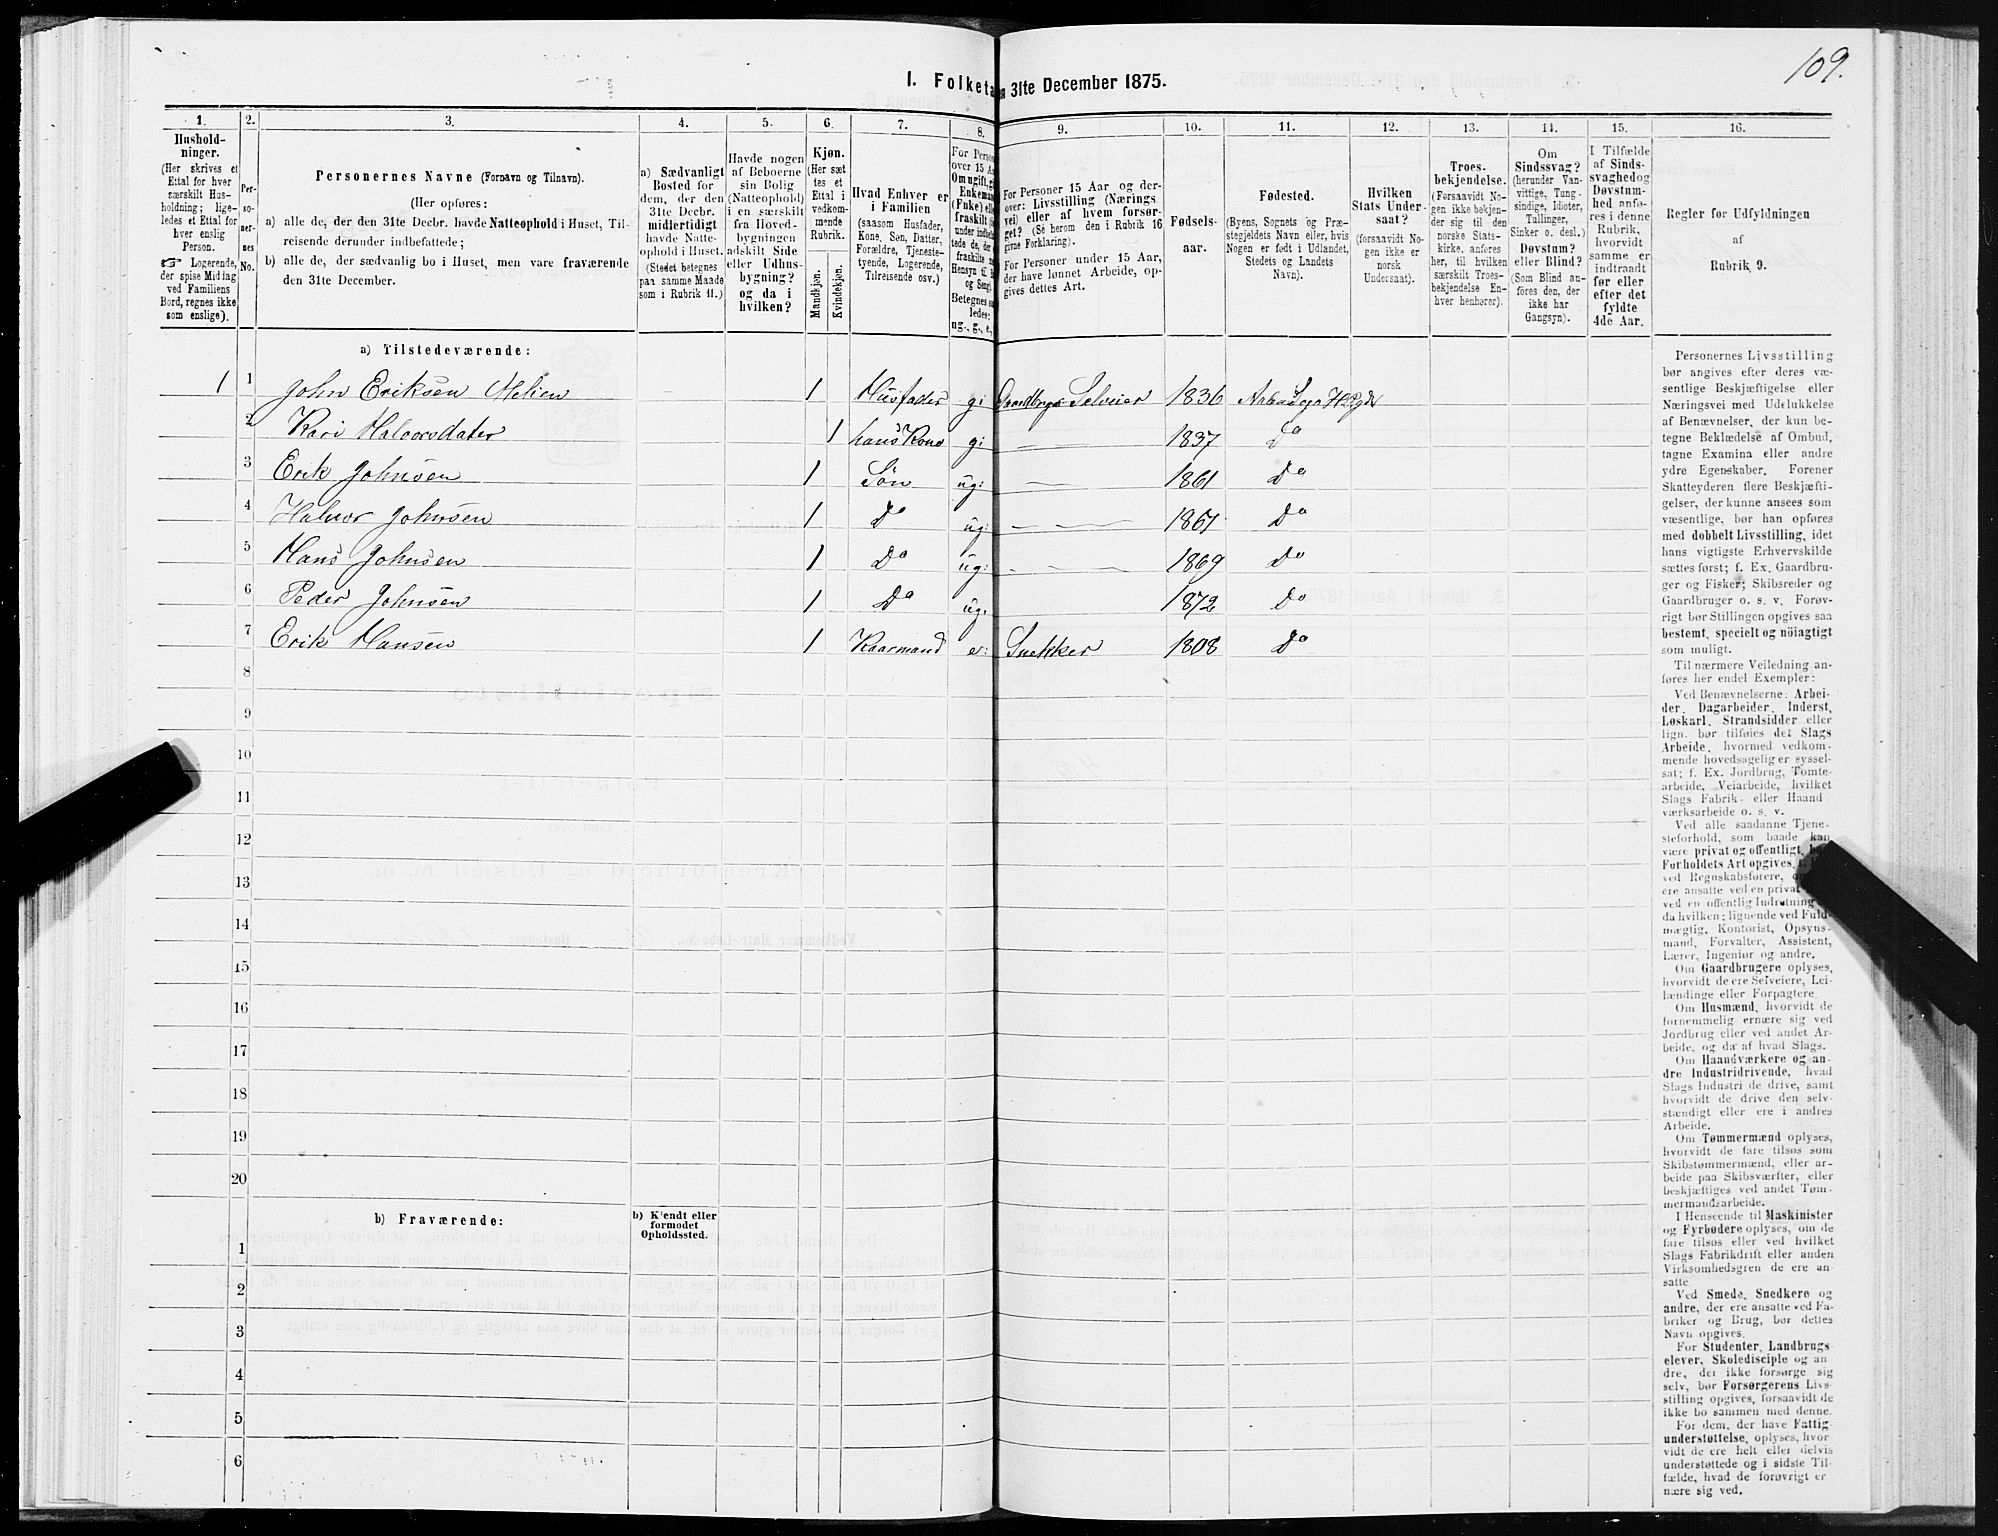 109.
I. Folketa
n 31te December 1875.
1.
2.
3.
4.
5.
6.
7.
8.
9.
10.
11.
12.
13.
14.
15.
16.
Hushold-
ninger.
(Her skrives et
Ettal for hver
særskilt Hus-
holdning; lige-
ledes et Ettal for
hver enslig
Person.
☞ Logerende,
der spise Middag
ved Familiens
Bord, regnes ikke
som enslige).
Per-
so-
ner-
nes
No.
Personernes Navne (Fornavn og Tilnavn).
(Her opføres:
a) alle de, der den 31te Decbr. havde Natteophold i Huset, Til-
reisende derunder indbefattede;
b) alle de, der sædvanlig bo i Huset, men vare fraværende
den 31te December.
a) Sædvanligt
Bosted for
dem, der den
31te Decbr.
midlertidigt
havde Natte-
ophold i Huset.
(Stedet betegnes
paa samme Maade
som i Rubrik 11.)
Havde nogen
af Beboerne
sin Bolig
(Natteophold)
i en særskilt
fra Hoved-
bygningen
adskilt Side
eller Udhus-
bygning?
og da i
hvilken?
Kjøn.
(Her sæt
tes et
Ettal i
vedkom-
mende
Rubrik.
Mandkjøn.
Kvindekjøn.
Hvad Enhver er
i Familien
(saasom Husfader,
Kone, Søn, Datter,
Forældre, Tjeneste-
tyende, Logerende,
Tilreisende osv.)
For Person
over 15 Aa
Om ugift, gi
Enkeman
(Fuke) elle
fraskilt
Hensyn til
og Seng).
Betegnes sa
ledes:
ug., g., e.,
For Personer 15 Aar og der-
over: Livsstilling (Nærings
vei) eller af hvem forsør-
get? (Se herom den i Rubrik 16
givne Forklaring).
For Personer under 15 Aar,
der have lønnet Arbeide, op-
gives dettes Art.
Fødsels-
aar.
Fødested.
(Byens, Sognets og Præ-
stegjeldets Navn eller, hvis
Nogen er født i Udlandet,
Stedets og Landets
Navn).
Hvilken
Stats Under-
saat?
(forsaavidt No-
gen ikke er
norsk
Undersaat).
Troes-
bekjendelse.
(Forsaavidt No-
gen ikke bekjen-
der sig til den
norske Stats-
kirke, anføres
her, til hvilken
særskilt Troes-
bekjendelse En-
hver henhører).
Om
Sindssvag?
(herunder Van-
vittige, Tung-
sindige, Idioter,
Tullinger,
Sinker o. desl.)
Døvstum?
eller Blind?
(Som Blind an-
føres den, der
ikke har
Gangsyn).
I Tilfælde
af Sinds-
svaghed og
Døvstum-
hed anfø-
res i denne
Rubrik,
hvorvidt
samme er
indtraadt
før eller
efter det
fyldte
4de Aar.
Regler for Udfyldningen
af
Rubrik 9.
a) Tilstedeværende:
1 1 John Eriksen Melien 1 Husfader g: Gaardbruger Selveier 1836
2 Kari Halvorsdater 1 hans Kone g: 1837 Do
3 Erik Johnsen 1 Søn ug: 1861 Do
4 Halvor Johnsen 1 Do ug: Do
5 Hans Johnsen 1 Do ug: 1869 Do
6 Peder Johnsen 1 Do ug: 1872 Do
7 Erik Hansen 1 Kaarmand e: Snekker 1808 Do
8
9
10
11
12
13
14
15
16
17
18
19
20
b) Fraværende:
b) Kjendt eller
formodet
Opholdssted.
1
2
3
4
5
6
Personernes Livsstilling
bør angives efter deres væ-
sentlige Beskjæftigelse eller
Næringsvei med Udelukkelse
af Benævnelser, der kun be-
tegne Beklædelse af Ombud,
tagne Examina eller andre
ydre Egenskaber. Forener
Skatteyderen flere Beskjæfti-
gelser, der kunne ansees som
væsentlige, bør han opføres
med dobbelt Livsstilling, idet
hans vigtigste Erhvervskilde
sættes først; f. Ex. Gaardbru-
ger og Fisker; Skibsreder og
Gaardbruger o. s. v. Forøv-
rigt bør Stillingen opgives saa
bestemt, specielt og nöiagtigt
som muligt.
Til nærmere Veiledning an-
føres her endel Exempler:
Ved Benævnelserne: Arbei-
der, Dagarbeider, Inderst,
Løskarl, Strandsidder eller
lign. bør tilføies det Slags
Arbeide, hvormed vedkom-
mende hovedsagelig er syssel-
sat; f. Ex. Jordbrug, Tomte-
arbeide, Veiarbeide, hvilket
Slags Fabrik- eller Haand
værksarbeide o. s. v.
Ved alle saadanne Tjene-
steforhold, som baade kan
være privat og offentligt, bør
Forholdets Art opgives,
ved Regnskabsførere,
ere ansatte ved en privat
ved en offentlig Indretning
da hvilken; lignende ved Fuld-
mægtig, Kontorist, Opsyns-
mand, Forvalter, Assistent,
Lærer, Ingeniør og andre.
Om Gaardbrugere oplyses,
hvorvidt de ere Selveiere, Lei-
lændinge eller Forpagtere.
Om Husmænd, hvorvidt de
fornemmelig ernære sig ved
Jordbrug eller ved andet Ar-
beide, og da af hvad Slags.
Om Haandværkere og an-
dre Industridrivende, hvad
Slags Industri de drive, samt
hvorvidt de drive den selv-
stændigt eller ere i andres
Arbeide.
Om Tømmermænd oplyses,
hvorvidt de fare tilsøs som
Skibstømmermænd, eller ar-
beide paa Skibsværfter, eller
beskjæftiges ved andet Tøm-
mermandsarbeide.
I Henseende til Maskinister
og Fyrbødere oplyses, om de
fare tilsøs eller ved hvilket
Slags Fabrikdrift eller anden
Virksomhedsgren de ere an-
satte.
Ved Smede, Snedkere og
andre, der ere ansatte ved Fa-
briker og Brug, bør dettes
Navn opgives.
For Studenter, Landbrugs
elever, Skoledisciple og an
dre, der ikke forsørge sig
selv, bør Forsørgerens Livs-
stilling opgives, forsaavidt de
ikke bo sammen med denne.
For dem, der have Fattig
understøttelse, oplyses, hvor-
vidt de ere helt eller delvis
understøttede og i sidste Til-
fælde, hvad de forøvrigt er
nære sig ved.